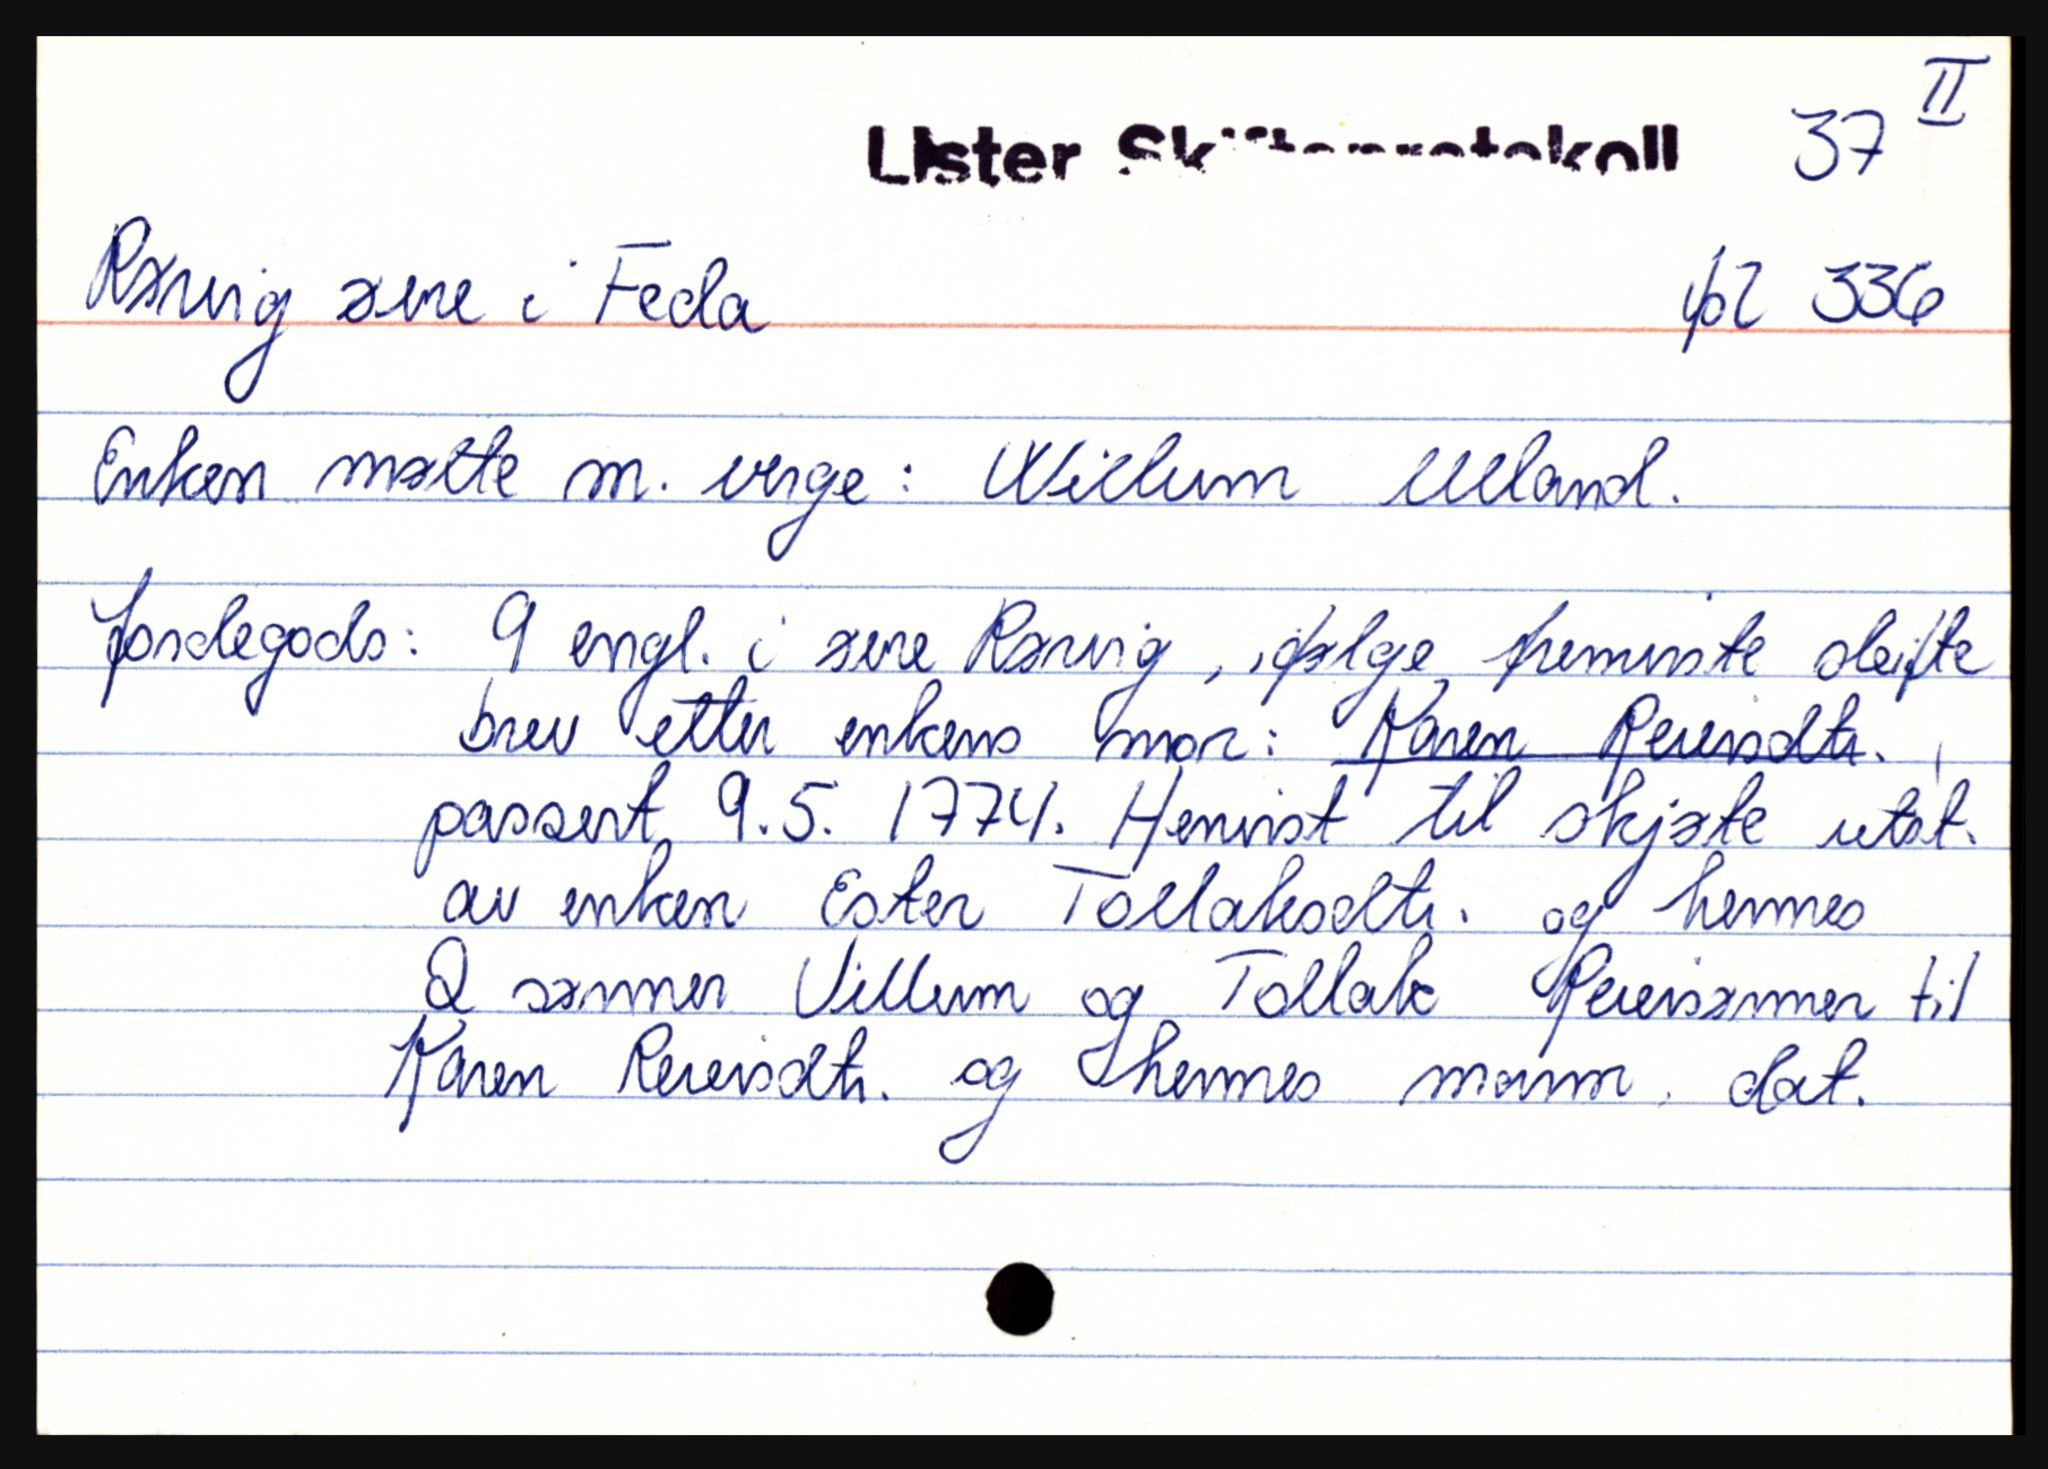 37 II
Lister Skifteprotokoll
Rørvig øvre i Feda fol 336
Enken møtte m. verge: Willum Ueland.
Jordegods: 9 engl. i øvre Rørvig, ifølge fremviste skifte
brev etter enkens mor: Karen Reiersdtr.,
passert 9.5. 1774. Henvist til skjøte utst.
av enken Ester Tollaksdtr. og hennes
2 sønner Villum og Tollak Reiersønner til
Karen Reiersdtr. og hennes mann, dat.